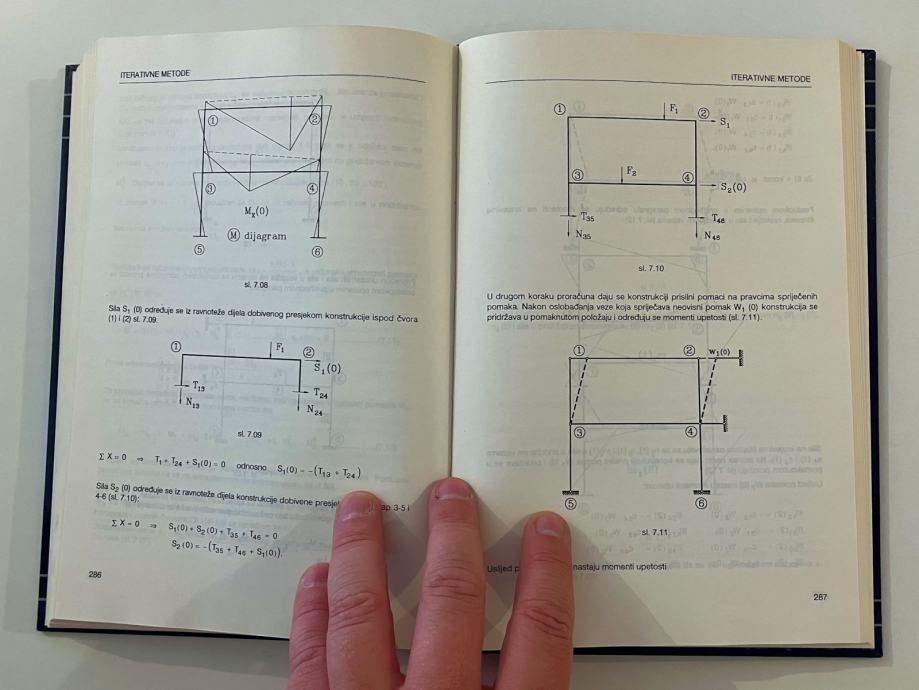 ITERATIVNE METODE
① ②
③ ④
Mx(0)
Ⓜ dijagram
⑤ ⑥
sl. 7.08
Sila S1 (0) određuje se iz ravnoteže dijela dobivenog presjekom konstrukcije ispod čvora
(1) i (2) sl. 7.09.
① F1 ② S1(0)
T13 T24
N13 N24
sl. 7.09
Σ X = 0 ⇒ T1 + T24 + S1(0) = 0 odnosno S1(0) = -(T13 + T24)
Sila S2 (0) određuje se iz ravnoteže dijela konstrukcije dobivene 3-5 i
4-6 (sl. 7.10):
Σ X = 0 ⇒ S1(0) + S2(0) + T35 + T46 = 0
S2(0) = -(T35 + T46 + S1(0)).
286
ITERATIVNE METODE
① F1 ② S1
③ F2 ④ S2(0)
T35 T46
N35 N46
sl. 7.10
U drugom koraku proračuna daju se konstrukciji prisilni pomaci na pravcima spriječenih
pomaka. Nakon oslobađanja veze koja spriječava neovisni pomak W1 (0) konstrukcija se
pridržava u pomaknutom položaju i određuju se momenti upetosti (sl. 7.11).
① ② w1(0)
③ ④
⑤ ⑥
sl. 7.11
Uslijed nastaju momenti upetosti
287